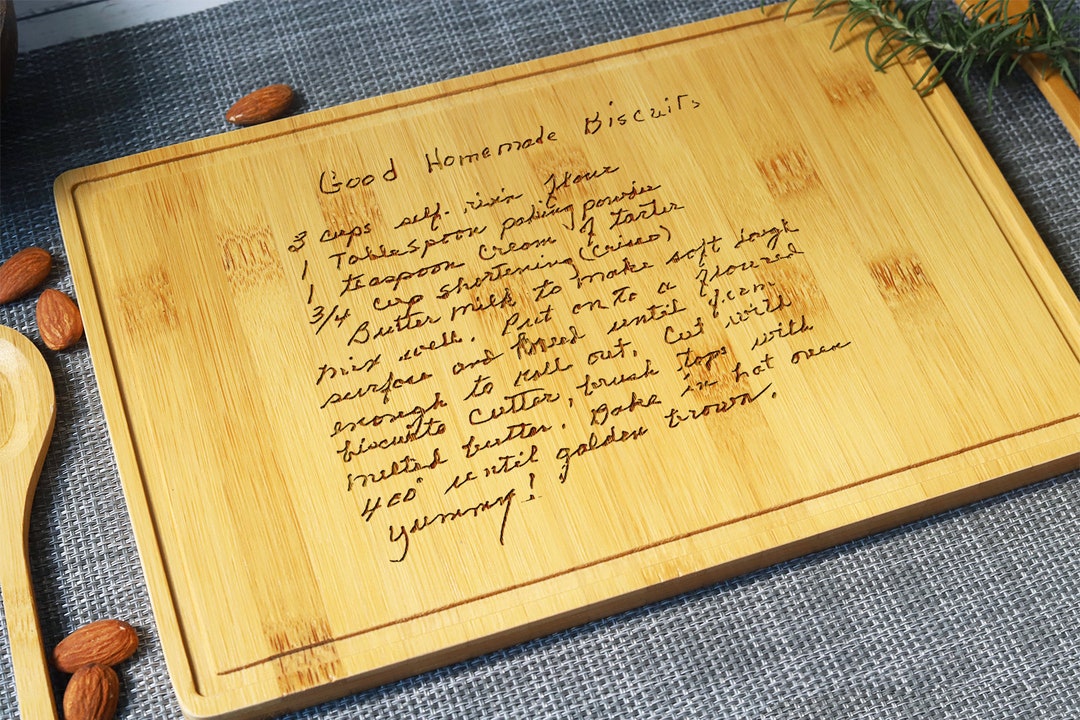 Good Homemade Biscuits
3 cups self-risin flour
1 Tablespoon baking powder
1 teaspoon Cream of tarter
3/4 cup shortening (Crisco)
Butter milk to make soft dough
mix well. Put onto a floured
surface and kneed until firm
enough to roll out. Cut with
biscuits cutter, brush tops with
melted butter. Bake in hot oven
400° until golden brown.
yummy!